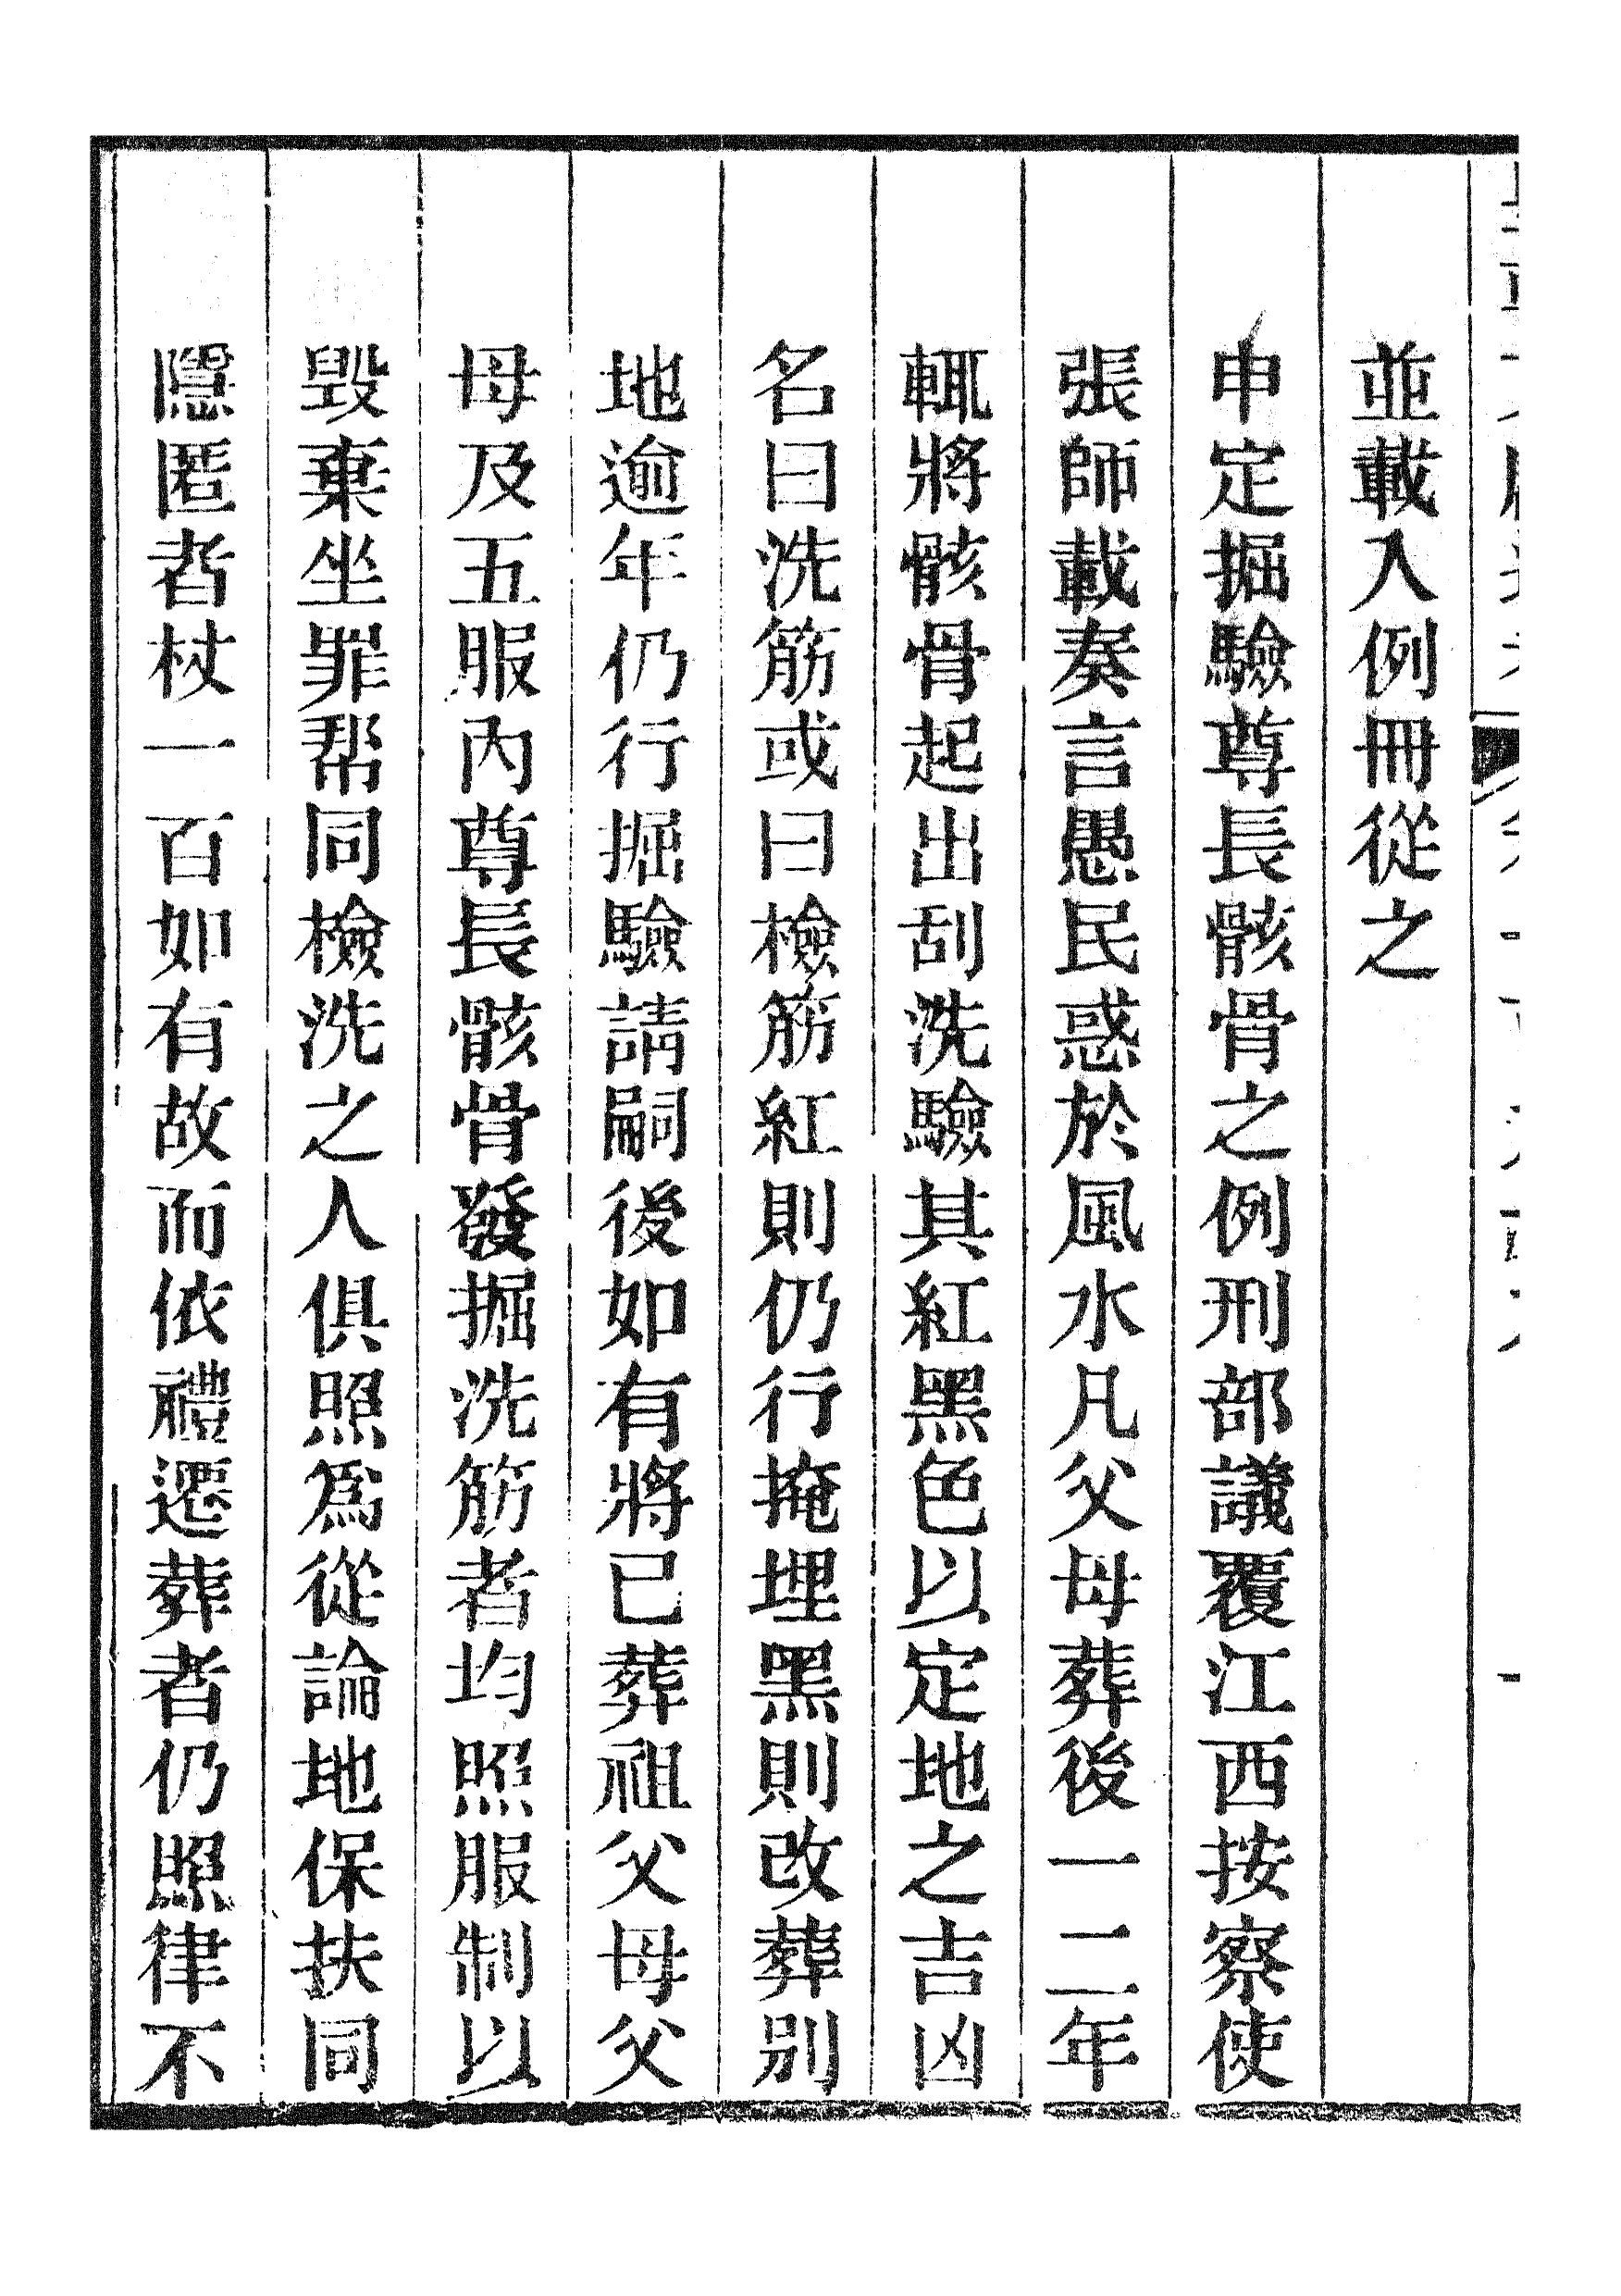 並載入例冊從之
申定掘驗尊長骸骨之例刑部議覆江西按察使
張師載奏言愚民惑於風水凡父母葬後一二年
輒將骸骨起出刮洗驗其紅黑色以定地之吉凶
名曰洗筋或曰檢筋紅則仍行掩埋黑則改葬別
地逾年仍行掘驗請嗣後如有將已葬祖父母父
母及五服內尊長骸骨發掘洗筋者均照服制以
毀棄坐罪幇同檢洗之人俱照爲從論地保扶同
隱匿者杖一百如有故而依禮遷葬者仍照律不